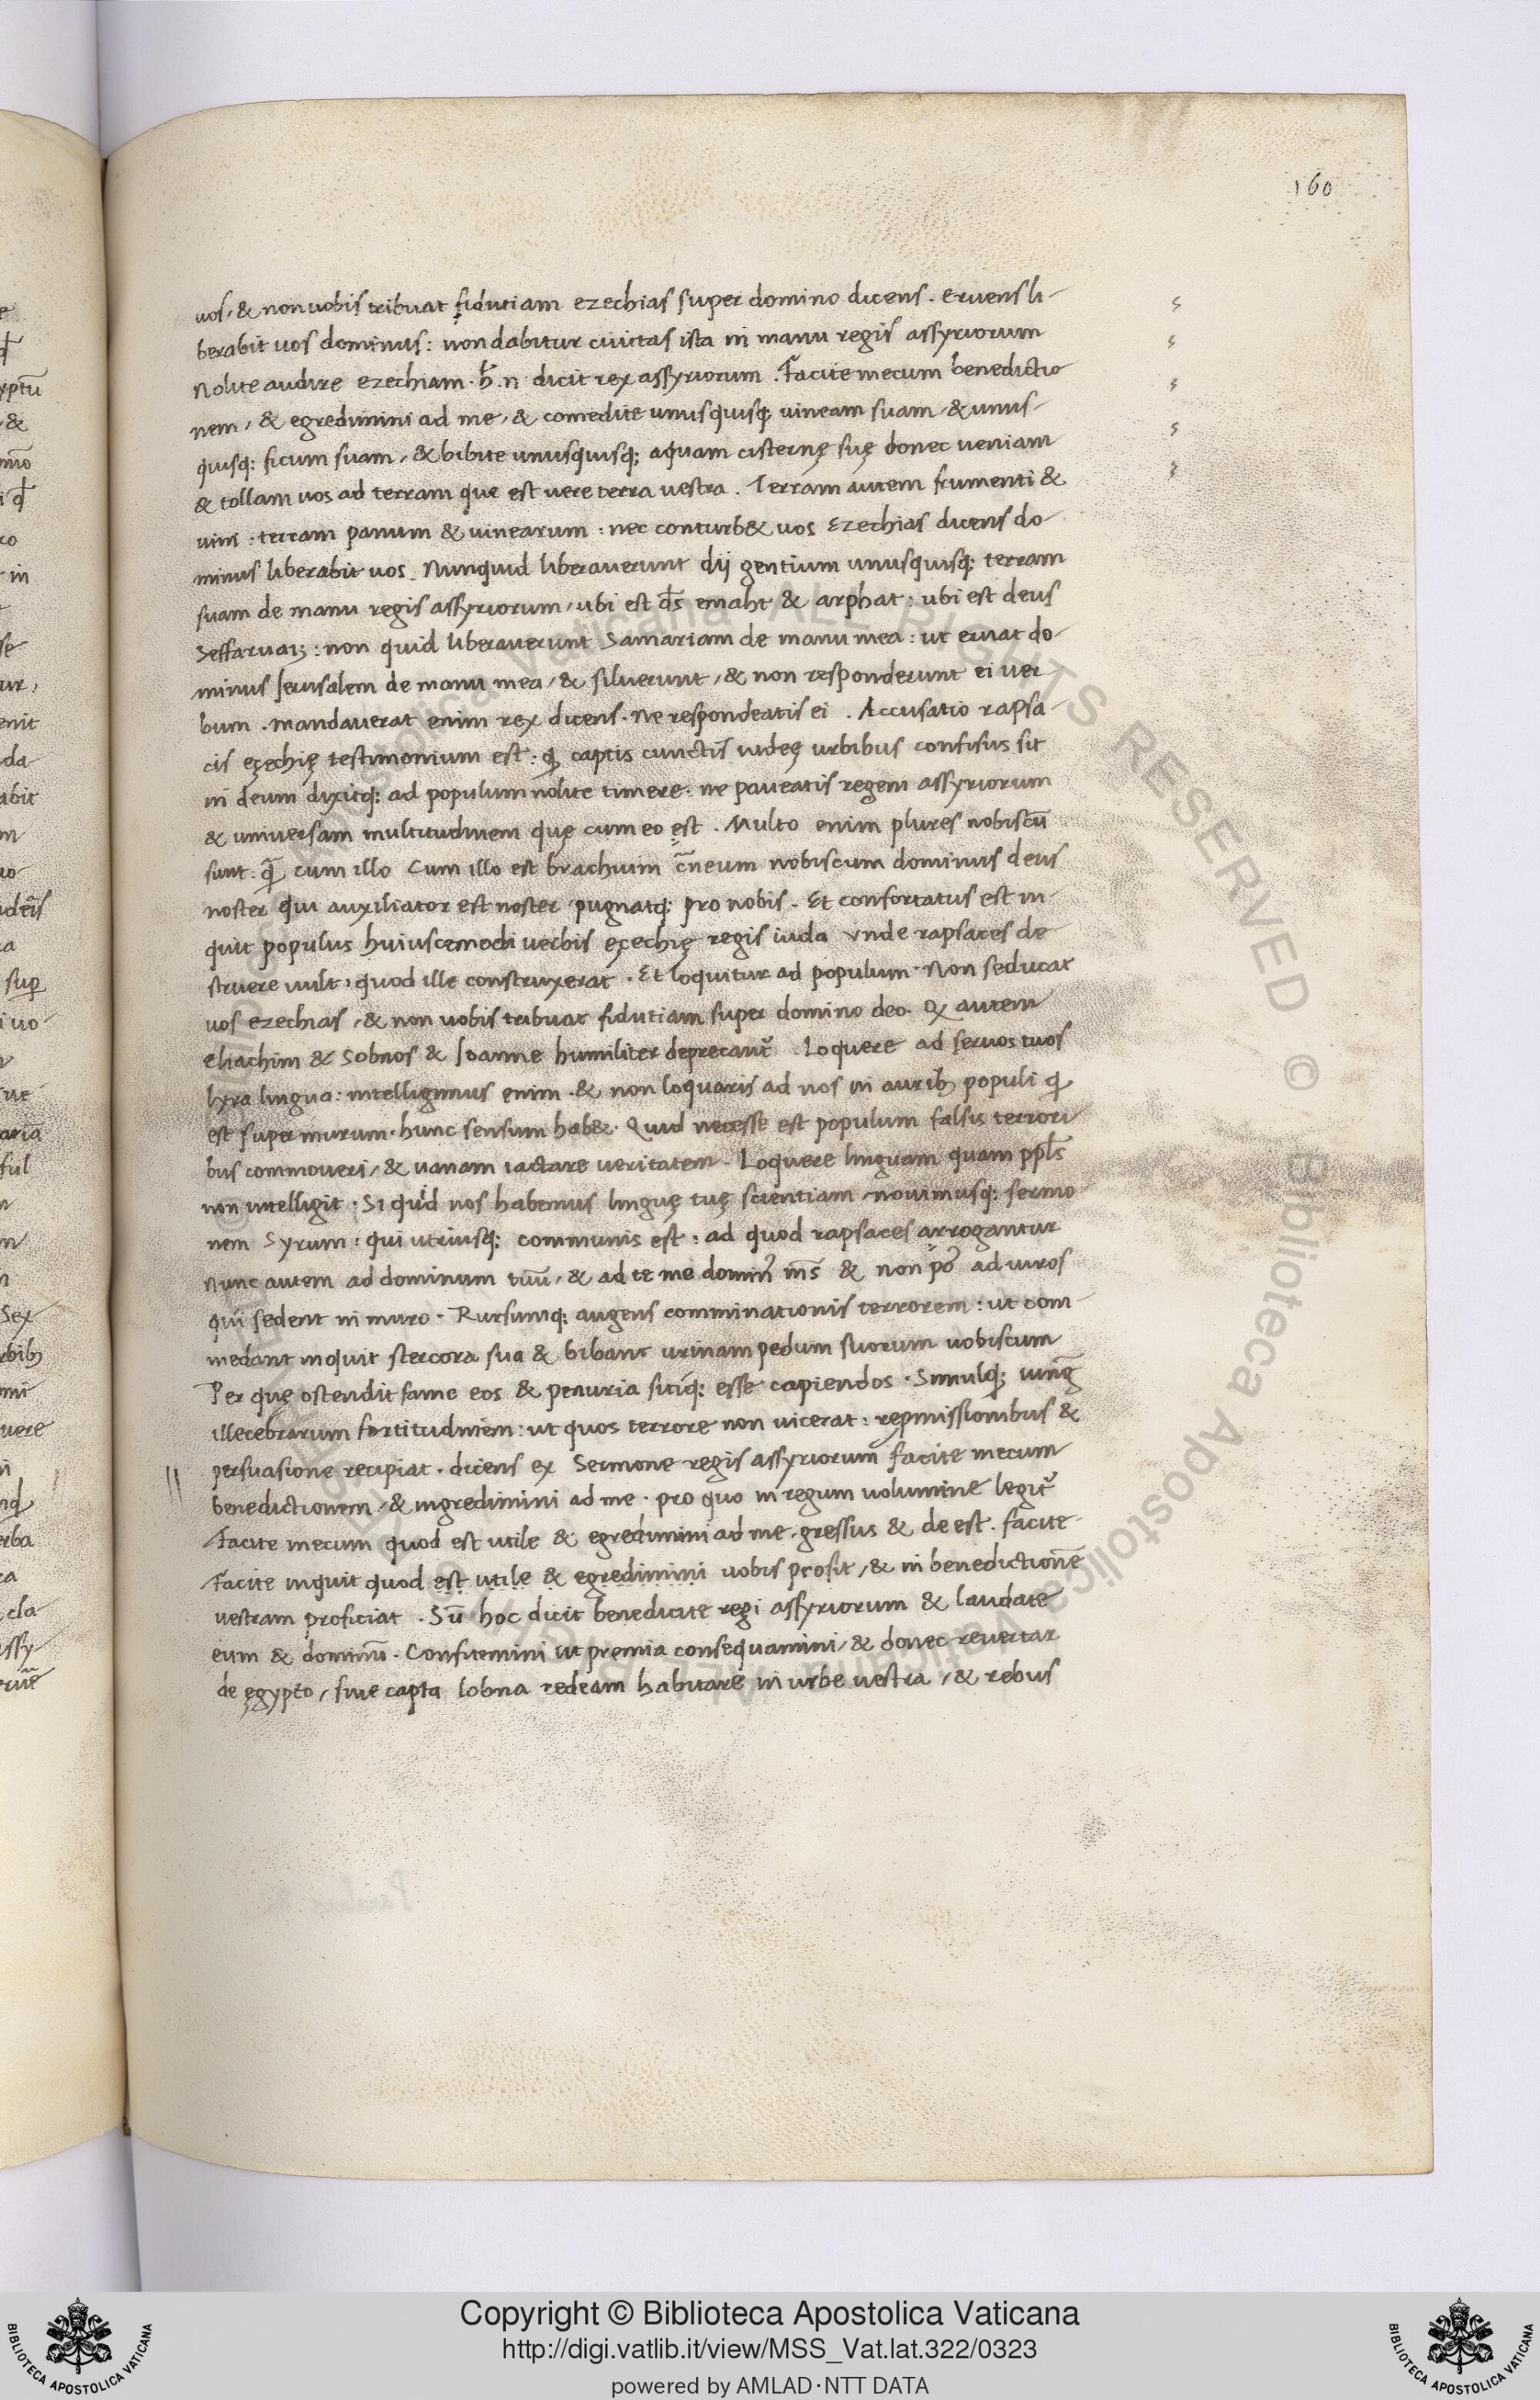 160
uos, & non uobis tribuat fidutiam ezechias super domino dicens. Eruens li-
berabit uos dominus: non dabitur ciuitas ista in manu regis assyriorum
Nolite audire ezechiam. h̃. n dicit rex assyriorum. Facite mecum benedictio
nem, & egredimini ad me, & comedite unusquisq; uineam suam, & unus-
quisq; ficum suam, & bibite unusquisq; aquam cisternę suę donec ueniam
& tollam uos ad terram que est uere terra uestra. Terram autem frumenti &
uini: terram panum & uinearum: nec conturb& uos Ezechias dicens do-
minus liberabit uos. Nunquid liberauerunt dij gentium unusquisq; terram
suam de manu regis assyriorum, ubi est d̃s emaht & arphat: ubi est deus
Seffaruaiʒ: non quid liberauerunt Samariam de manu mea: ut eruat do-
minus Jerusalem de manu mea, & siluerunt, & non responderunt ei uer
bum. mandauerat enim rex dicens. Ne respondeatis ei. Accusatio rapsa-
cis eçechię testimonium est: ꝙ captis cunctis iudeę urbibus confisus sit
in deum dixitq; ad populum nolite timere. ne paueatis regem assyriorum
& uniuersam multitudinem quę cum eo est. Multo enim plures nobiscũ
sunt. q̃ cum illo Cum illo est brachium c̃neum nobiscum dominus deus
noster qui auxiliator est noster pugnatq; pro nobis. Et confortatus est in-
quit populus huiuscemodi uerbis eçechię regis iuda vnde rapsaces de
struere uult, quod ille construxerat. Et loquitur ad populum. Non seducat
uos ezechias, & non uobis tribuat fidutiam super domino deo. Qx autem
eliachim & Sobnos & Joanne humiliter deprecant̃. Loquere ad seruos tuos
lyra lingua: intelligimus enim. & non loquaris ad nos in aurib; populi q̃
est super murum. hunc sensum hab&. Quid necesse est populum falsis terrori
bus commoueri, & uanam iactare ueritatem. Loquere linguam quam ppl̃s
non intelligit. Si quid nos habemus linguę tuę scientiam, nouimusq; sermo
nem Syrum: qui utriusq; communis est: ad quod rapsaces arrogantur
Nunc autem ad dominum tuũ, & ad te me domiñ m̃s & non põ ad uiros
qui sedent in muro. Rursumq; augens comminationis terrorem: ut com-
medant inquit stercora sua & bibant urinam pedum suorum uobiscum
Per quę ostendit fame eos & penuria sitiq; esse capiendos. Simulq; iung̃
illecebrarum fortitudinem: ut quos terrore non uicerat: repmissionibus &
persuasione recipiat. dicens ex Sermone regis assyriorum facite mecum
benedictionem, & ingredimini ad me. pro quo in regum uolumine legit̃
Facite mecum quod est utile & egredimini ad me. gressus & de est. facite
Facite inquit quod est utile & egredimini uobis prosit, & in benedictionẽ
uestram proficiat. Sũ hoc dicit benedicite regi assyriorum & laudate
eum & dominũ. Confitemini ut premia consequamini, & donec reuertar
de ęgypto, siue capta lobna redeam habitare in urbe uestra, & rebus
Copyright © Biblioteca Apostolica Vaticana
http://digi.vatlib.it/view/MSS_Vat.lat.322/0323
powered by AMLAD·NTT DATA